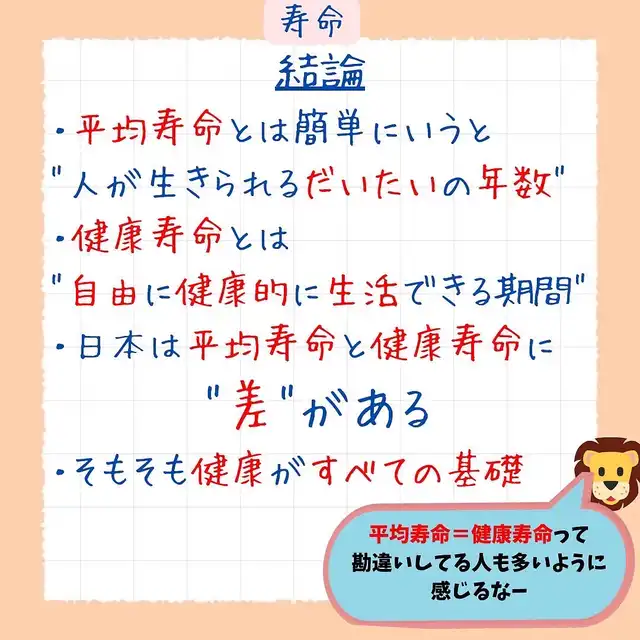 寿命
結論
・平均寿命とは簡単にいうと
"人が生きられるだいたいの年数"
・健康寿命とは
"自由に健康的に生活できる期間"
・日本は平均寿命と健康寿命に
"差"がある
・そもそも健康がすべての基礎
平均寿命＝健康寿命って
勘違いしてる人も多いように
感じるなー